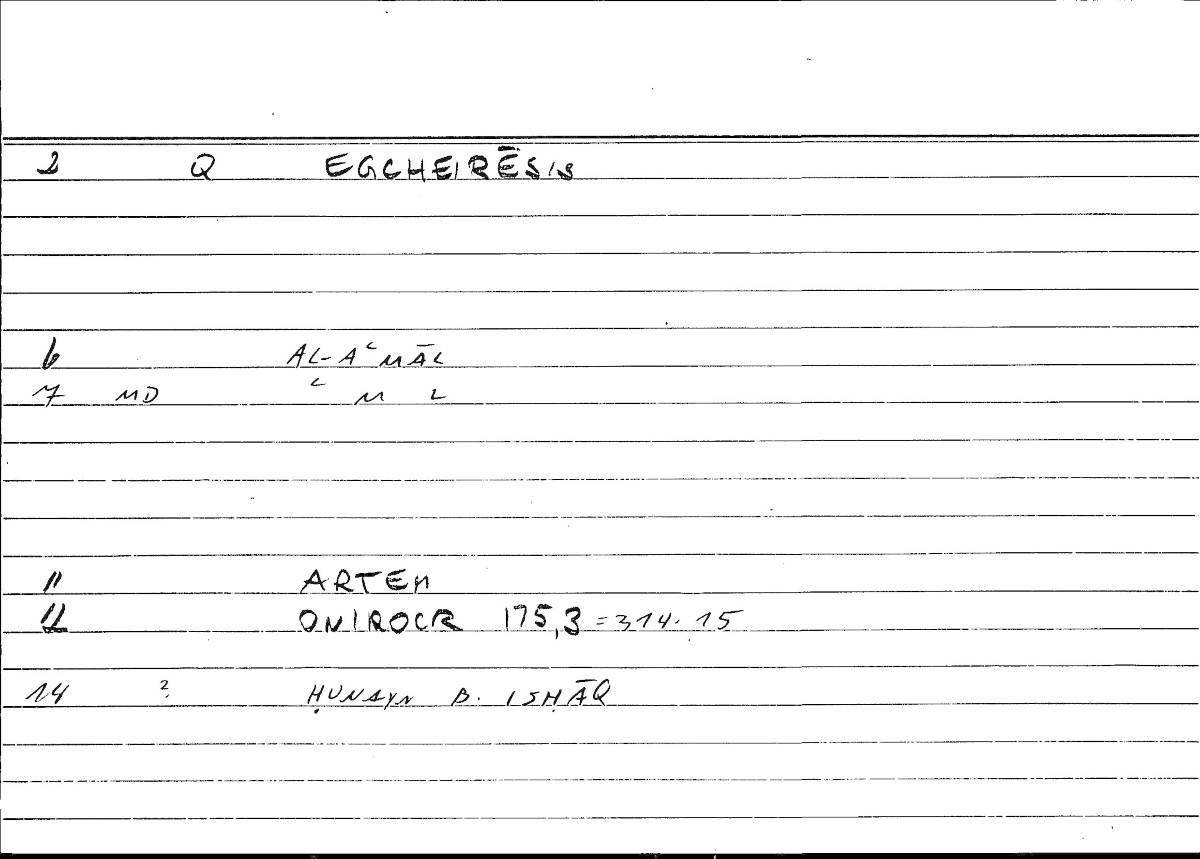 2 Q EGCHEIRĒSIS
6 AL-AʿMĀL
7 MD ʿ M L
11 ARTEM
12 ONIROCR 175,3 = 314.15
14 ? ḤUNAYN B. ISḤĀQ